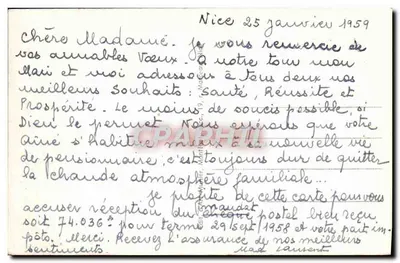 Nice 25 Janvier 1959
Chère Madame. Je vous remercie de
vos aimables Vœux. à notre tour mon
Mari et moi adressons à tous deux nos
meilleurs Souhaits : Santé, Réussite et
Prospérité. Le moins de soucis possible, si
Dieu le permet. Nous espérons que votre
aîné s'habitue mieux à sa nouvelle vie
de pensionnaire, c'est toujours dur de quitter
la chaude atmosphère familiale...
je profite de cette carte pour vous
accuser réception du chèque postal bien reçu
mandat
soit 74.036 pour terme 29 Sept 1958 et votre part im-
pôts. Merci. Recevez l'assurance de nos meilleurs
sentiments Mad Laurent
CPARAMA